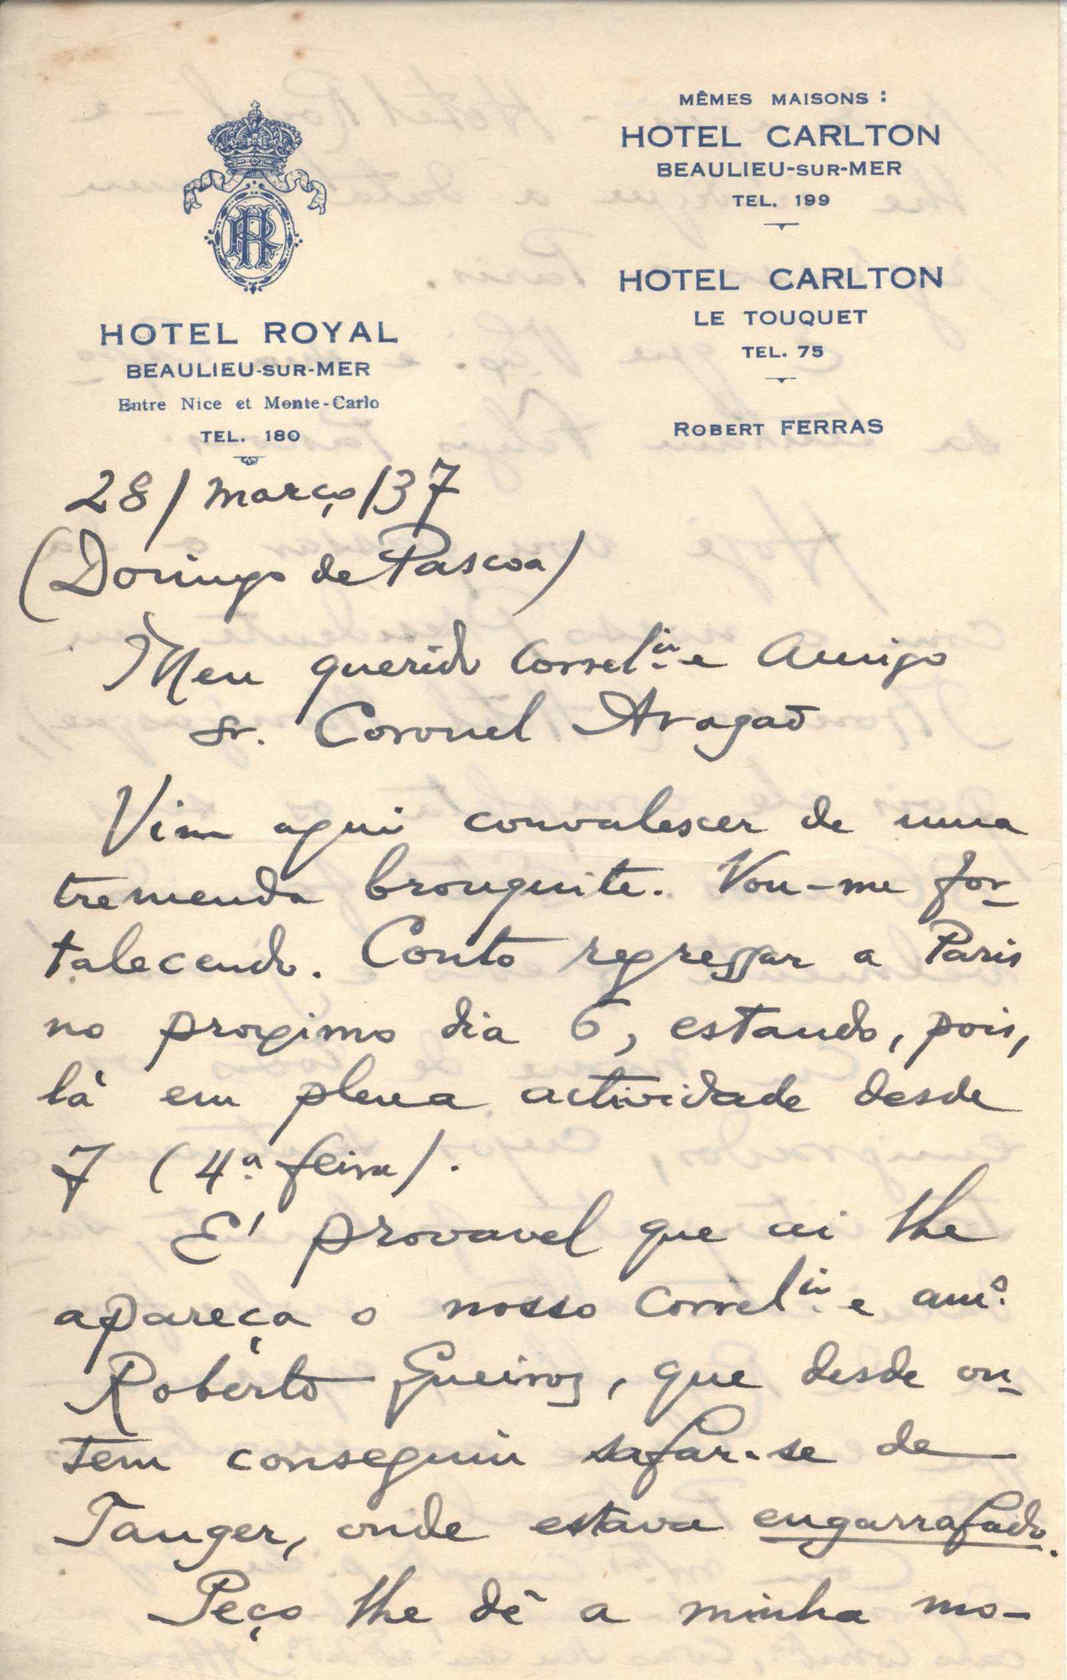 HR
HOTEL ROYAL
BEAULIEU-SUR-MER
Entre Nice et Monte-Carlo
TEL. 180
MÊMES MAISONS :
HOTEL CARLTON
BEAULIEU-SUR-MER
TEL. 199
HOTEL CARLTON
LE TOUQUET
TEL. 75
ROBERT FERRAS
28/março/37
(Domingo de Pascoa)
Meu querido Correl.io e Amigo
Sr. Coronel Aragaõ
Vim aqui convalescer de uma
tremenda bronquite. Vou-me for-
talecendo. Conto regressar a Paris
no proximo dia 6, estando, pois,
lá em plena actividade desde
7 (4.a feira).
E' provavel que ai lhe
apareça o nosso Correl.io e am.o
Roberto Queiroz, que desde on-
tem conseguiu safar-se de
Tanger, onde estava engarrafado.
Peço lhe dê a minha mo-